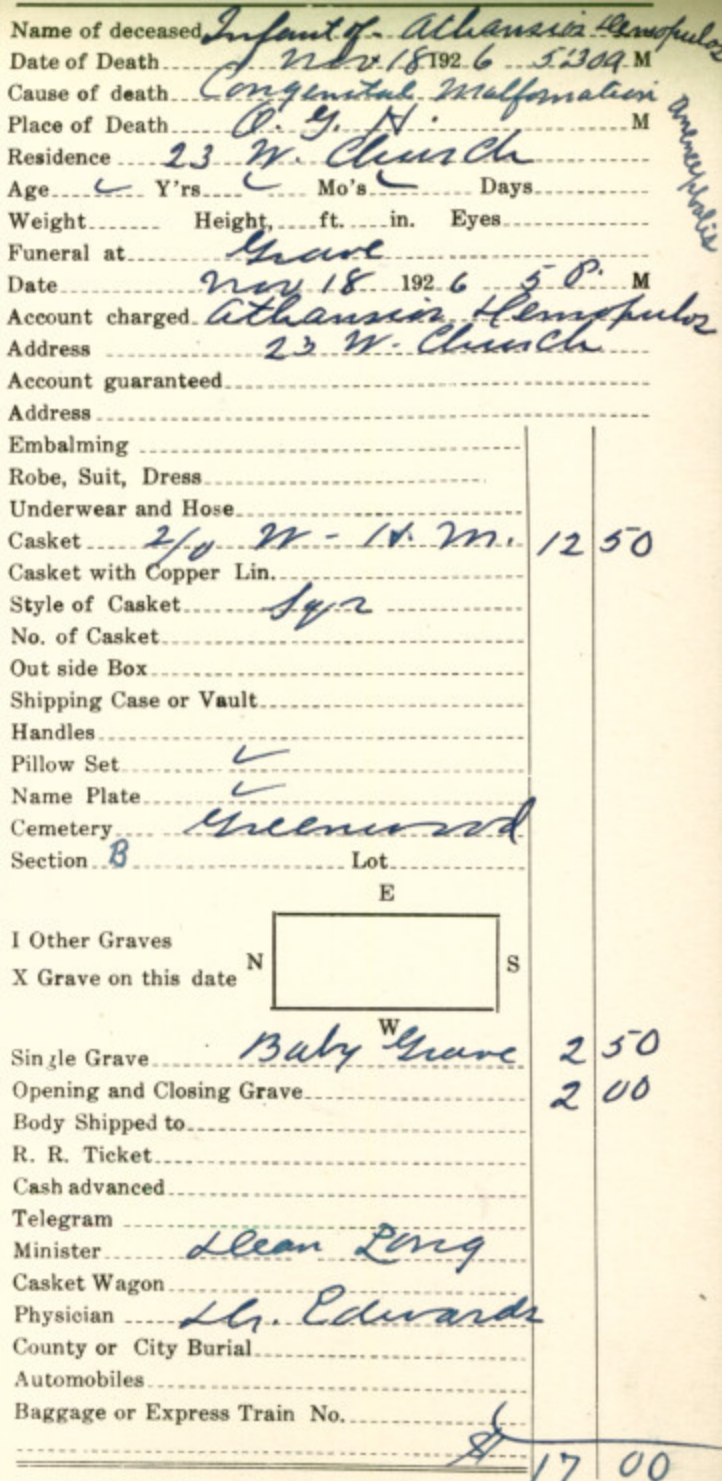 Name of deceased Infant of Athansios Demopulos
Date of Death Nov 18 1926 5:30 a M
Cause of death Congenital Malfomation
anencephalis
Place of Death O. G. H. M
Residence 23 W. Church
Age ✓ Y'rs ✓ Mo's ✓ Days
Weight Height, ft. in. Eyes
Funeral at Grave
Date Nov 18 1926 5 P. M
Account charged Athansios Demopulos
Address 23 W. Church
Account guaranteed
Address
Embalming
Robe, Suit, Dress
Underwear and Hose
Casket 2/0 W - H. M. 12 50
Casket with Copper Lin.
Style of Casket Sqr
No. of Casket
Out side Box
Shipping Case or Vault
Handles
Pillow Set ✓
Name Plate ✓
Cemetery Greenwood
Section B Lot
E
I Other Graves
N S
X Grave on this date
W
Single Grave Baby Grave 2 50
Opening and Closing Grave 2 00
Body Shipped to
R. R. Ticket
Cash advanced
Telegram
Minister Dean Long
Casket Wagon
Physician Dr. Edwards
County or City Burial
Automobiles
Baggage or Express Train No.
$ 17 00